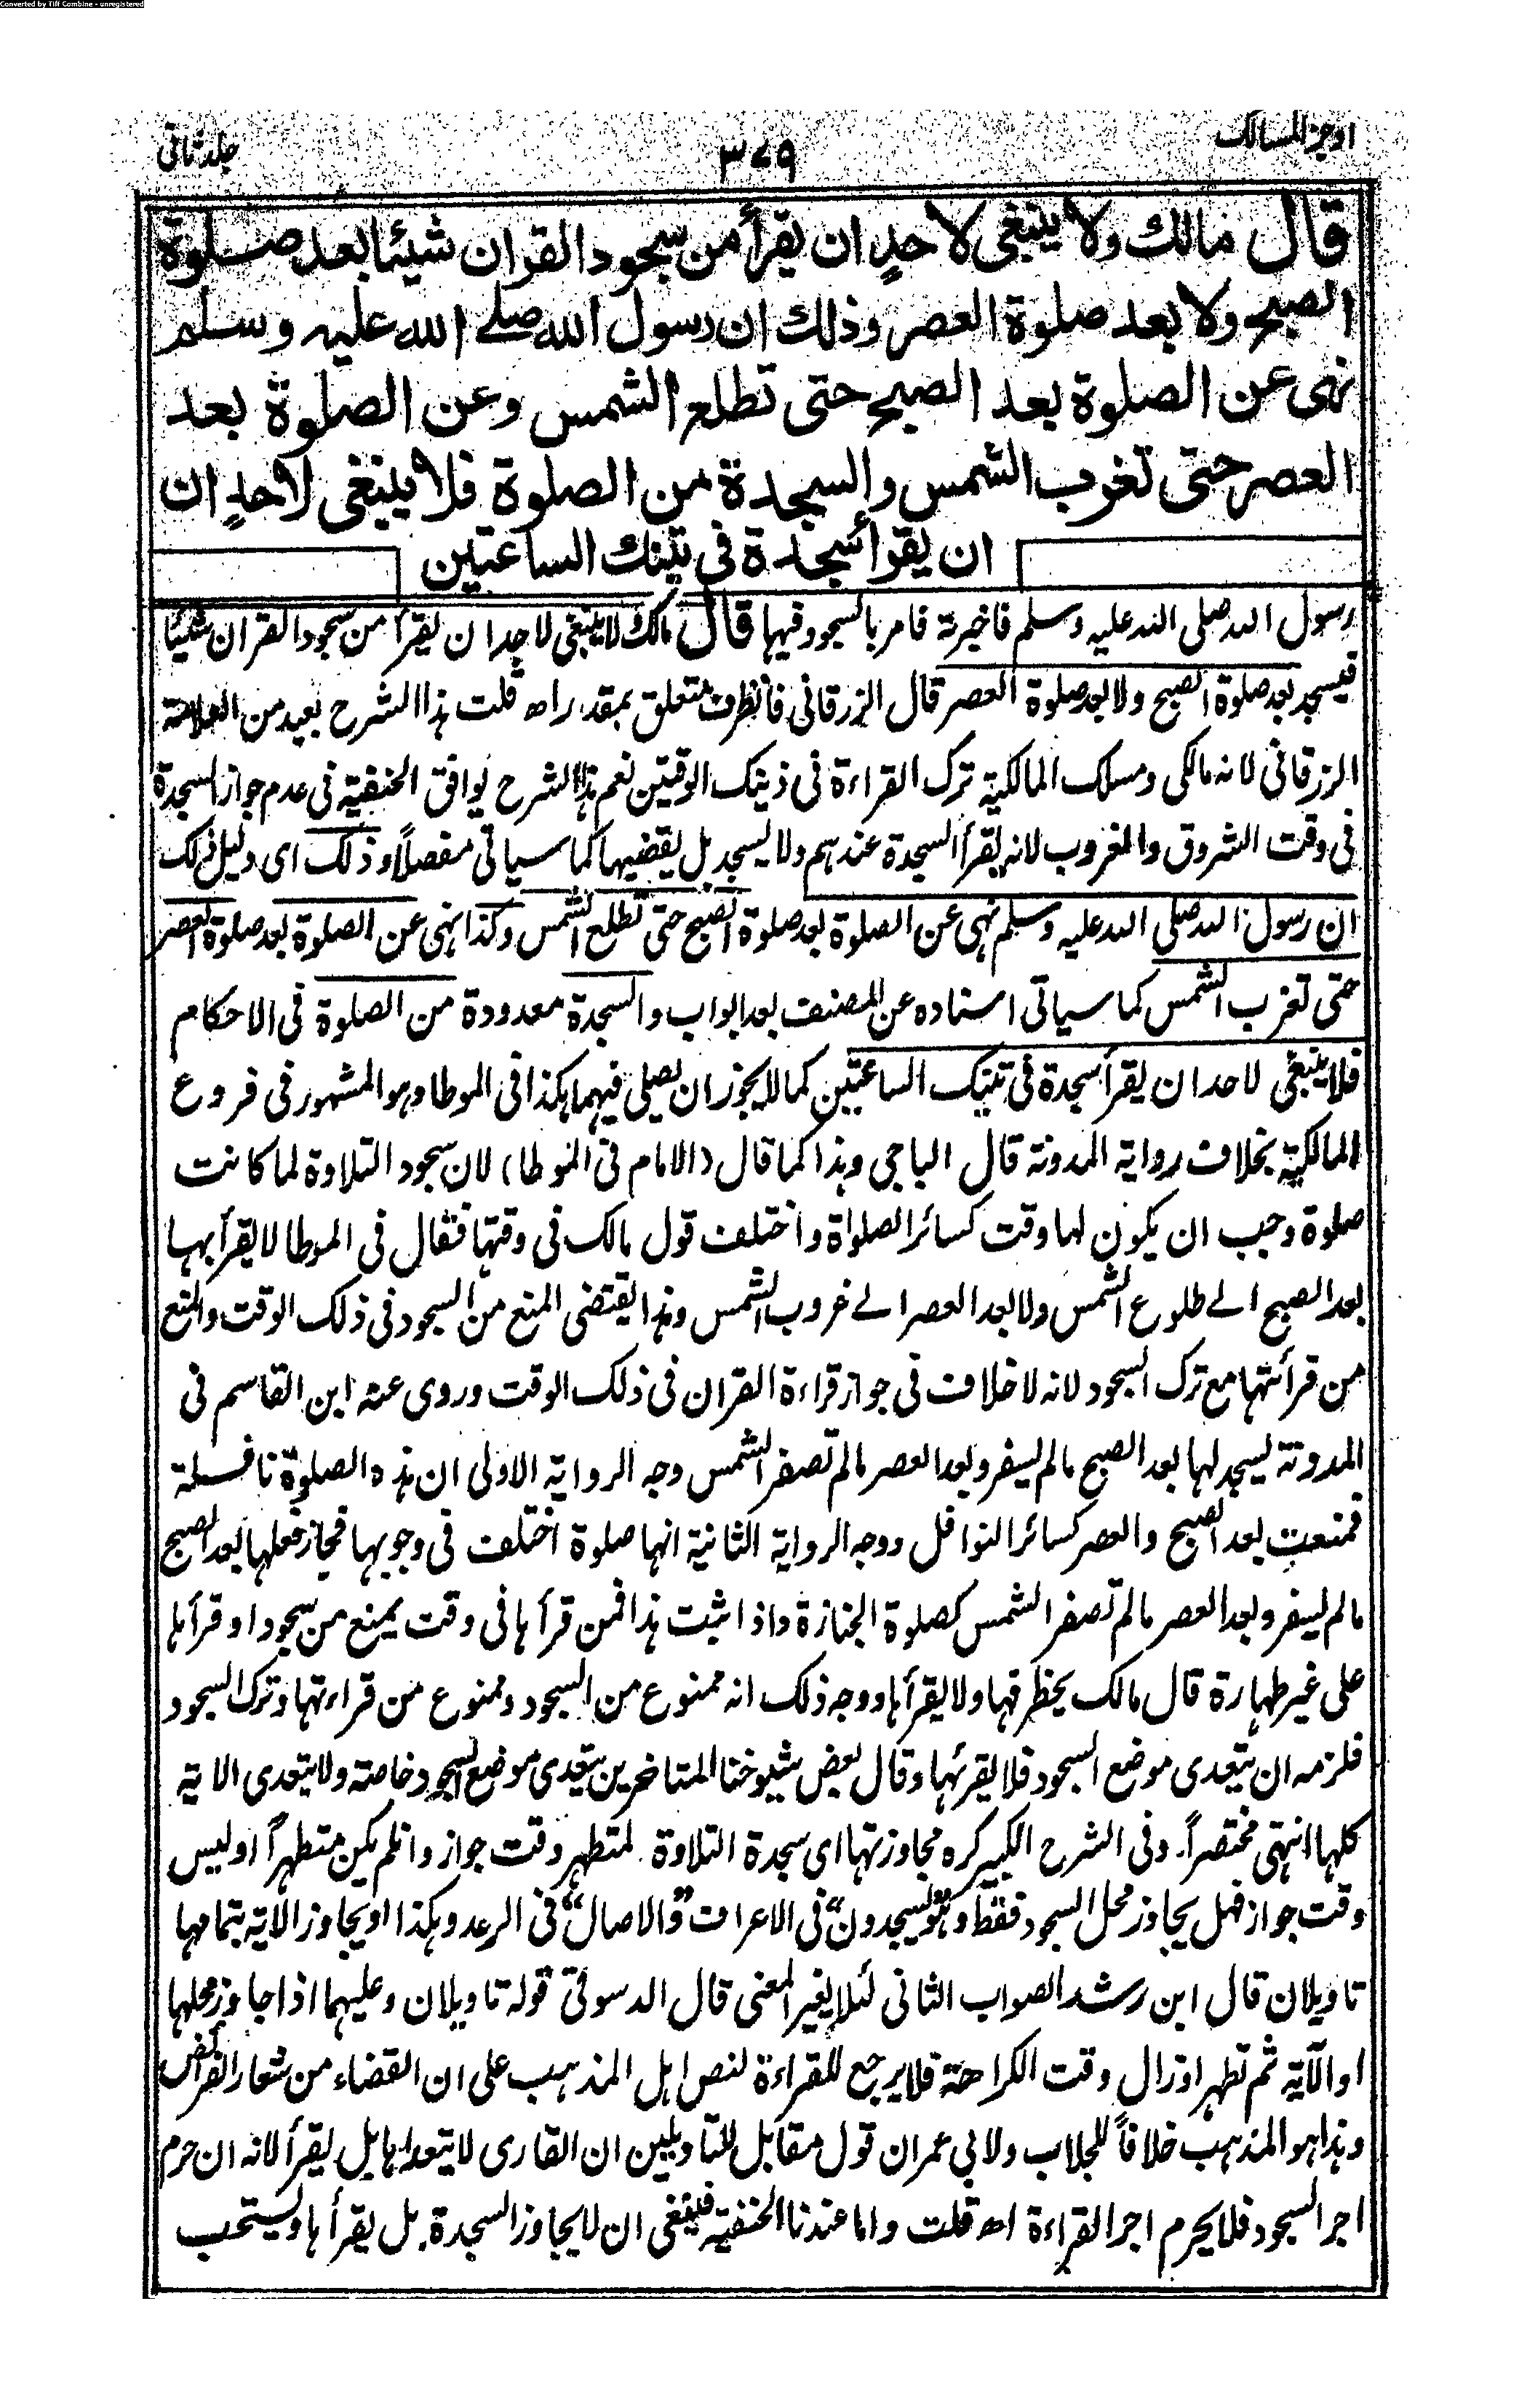 Converted by Tiff Combine - unregistered
اوجز المسالك
٣٧٩
جلد ثانی
قال مالك ولا ينبغى لاحدٍ ان يقرأ من سجود القران شيئا بعد صلوة
الصبح ولا بعد صلوة العصر وذلك ان رسول الله صلے الله عليه وسلم
نهى عن الصلوة بعد الصبح حتى تطلع الشمس وعن الصلوة بعد
العصر حتى تغرب الشمس والسجدة من الصلوة فلا ينبغى لاحدٍ ان
ان يقرأ سجدة فى تينك الساعتين
رسول الله صلى الله عليه وسلم فاخبرته فامر بالسجود فيها قال مالك لا ينبغى لاحد ان يقرأ من سجود القران شيئا
فيسجد بعد صلوة الصبح ولا بعد صلوة العصر قال الزرقانى فالظرف متعلق بمقدر اھ قلت هذا الشرح بعيد من العلامة
الزرقانى لانه مالكى ومسلك المالكية ترك القراءة فى ذينك الوقتين نعم هذا الشرح يوافق الحنفية فى عدم جواز السجدة
فى وقت الشروق والغروب لانه يقرأ السجدة عندهم ولا يسجد بل يقضيها كما سياتى مفصلاً وذلك اى دليل ذلك
ان رسول الله صلى الله عليه وسلم نهى عن الصلوة بعد صلوة الصبح حتى تطلع الشمس وكذا نهى عن الصلوة بعد صلوة العصر
حتى تغرب الشمس كما سياتى اسناده عن المصنف بعد ابواب والسجدة معدودة من الصلوة فى الاحكام
فلا ينبغى لاحد ان يقرأ سجدة فى تينك الساعتين كما لا يجوز ان يصلى فيهما هكذا فى الموطا وهو المشهور فى فروع
المالكية بخلاف رواية المدونة قال الباجى وهذا كما قال (الامام فى الموطا) لان سجود التلاوة لما كانت
صلوة وجب ان يكون لها وقت كسائر الصلواة واختلف قول مالك فى وقتها فقال فى الموطا لا يقرأ بها
بعد الصبح الے طلوع الشمس ولا بعد العصر الے غروب الشمس وهذا يقتضى المنع من السجود فى ذلك الوقت والمنع
من قرأئتها مع ترك السجود لانه لا خلاف فى جواز قراءة القران فى ذلك الوقت وروى عنه ابن القاسم فى
المدونة يسجد لها بعد الصبح مالم يسفر وبعد العصر مالم تصفر الشمس وجه الرواية الاولى ان هذه الصلوة نافلة
فمنعت بعد الصبح والعصر كسائر النوافل ووجه الرواية الثانية انها صلوة اختلف فى وجوبها فجاز فعلها بعد الصبح
مالم يسفر وبعد العصر مالم تصفر الشمس كصلوة الجنازة واذا ثبت هذا فمن قرأها فى وقت يمنع من سجود او قرأها
على غير طهارة قال مالك يخطرفها ولا يقرأها ووجه ذلك انه ممنوع من السجود وممنوع من قراءتها وترك السجود
فلزمه ان يتعدى موضع السجود فلا يقرئها وقال بعض شيوخنا المتاخرين يتعدى موضع السجود خاصته ولا يتعدى الاية
كلها انتهى مختصراً۔ وفى الشرح الكبير كره مجاوزتها اى سجدة التلاوة لمتطهر وقت جواز وان لم يكن متطهراً او ليس
وقت جواز فهل يجاوز محل السجود فقط وهو "يسجدون" فى الاعراف "والاصال" فى الرعد وهكذا او يجاوز الاية بتمامها
تاويلان قال ابن رشد الصواب الثانى لئلا يغير المعنى قال الدسوقى قوله تاويلان وعليهما اذا جاوز محلها
او الآية ثم تطهر او زال وقت الكراهة فلا يرجع للقراءة لنص اهل المذهب على ان القضاء من شعار الفرائض
وهذا هو المذهب خلافاً للجلاب ولابى عمران قول مقابل للتاويلين ان القارى لا يتعداها بل يقرأ لانه ان حرم
اجر السجود فلا يحرم اجر القراءة اھ قلت واما عندنا الحنفية فينبغى ان لا يجاوز السجدة۔ بل يقرأها ويستحب